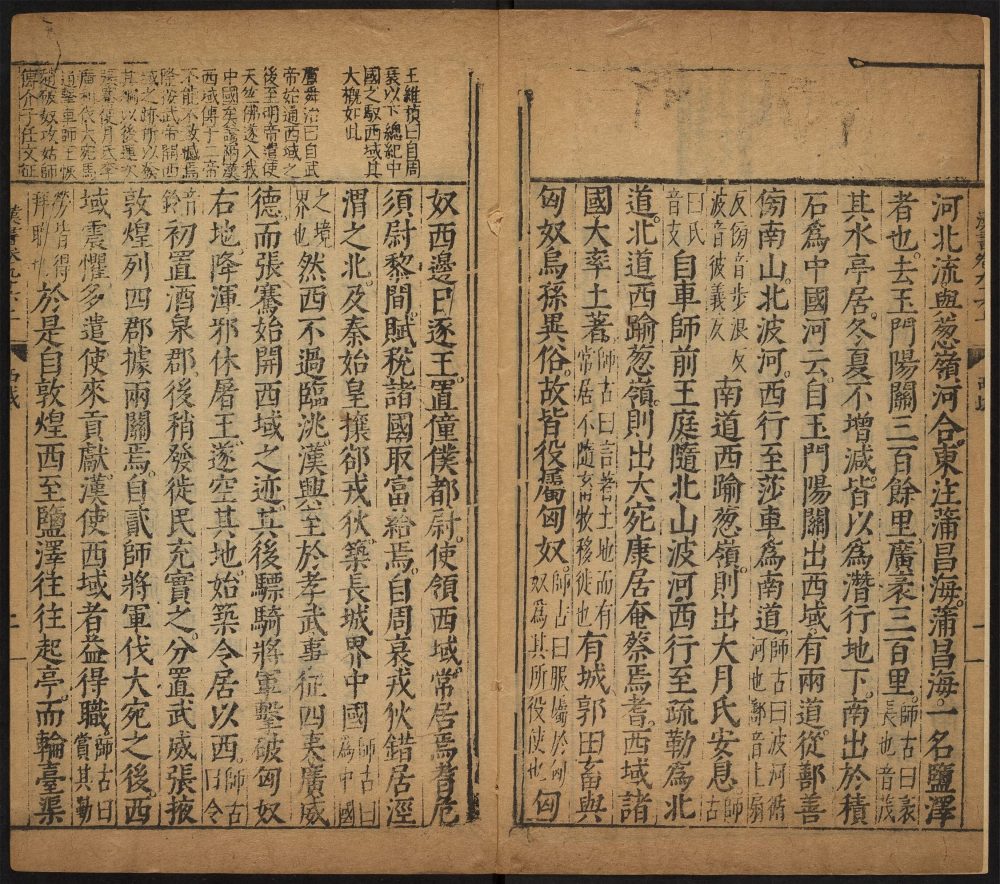 河北流與葱嶺河合東注蒲昌海蒲昌海一名鹽澤
者也去玉門陽關三百餘里廣袤三百里師古曰袤長也音茂
其水亭居冬夏不增減皆以爲潛行地下南出於積
石爲中國河云自玉門陽關出西域有兩道從鄯善
傍南山北波河西行至莎車爲南道師古曰波河循河也鄯音上扇
反傍音步浪反波音彼義反南道西踰葱嶺則出大月氏安息師古
曰氏音支自車師前王庭隨北山波河西行至疏勒爲北
道北道西踰葱嶺則出大宛康居奄蔡焉耆西域諸
國大率土著師古曰言著土地而有常居不隨畜牧移徙也有城郭田畜與
匈奴烏孫異俗故皆役屬匈奴師古曰服屬於匈奴爲其所役使也匈
王維楨曰自周
衰以下總紀中
國之馭西域其
大槩如此
廣舜治曰自武
帝始通西域之
後至明帝遣使
天竺佛遂入我
中國矣
西域傳于二帝
不能不致憾焉
武帝開西
域之跡所以
其禍以後
張騫使月氏
廣利伐大宛
車師王
趙破奴攻姑師
傅介子任文
奴西邊日逐王置僮僕都尉使領西域常居焉耆危
須尉黎間賦稅諸國取富給焉自周衰戎狄錯居涇
渭之北及秦始皇攘卻戎狄築長城界中國師古曰爲中國
之境界也然西不過臨洮漢興至於孝武事征四夷廣威
德而張騫始開西域之迹其後驃騎將軍擊破匈奴
右地降渾邪休屠王遂空其地始築令居以西師古曰令
音鈴初置酒泉郡後稍發徙民充實之分置武威張掖
敦煌列四郡據兩關焉自貳師將軍伐大宛之後西
域震懼多遣使來貢獻漢使西域者益得職師古曰賞其勤
勞皆得拜職也於是自敦煌西至鹽澤往往起亭而輪臺渠